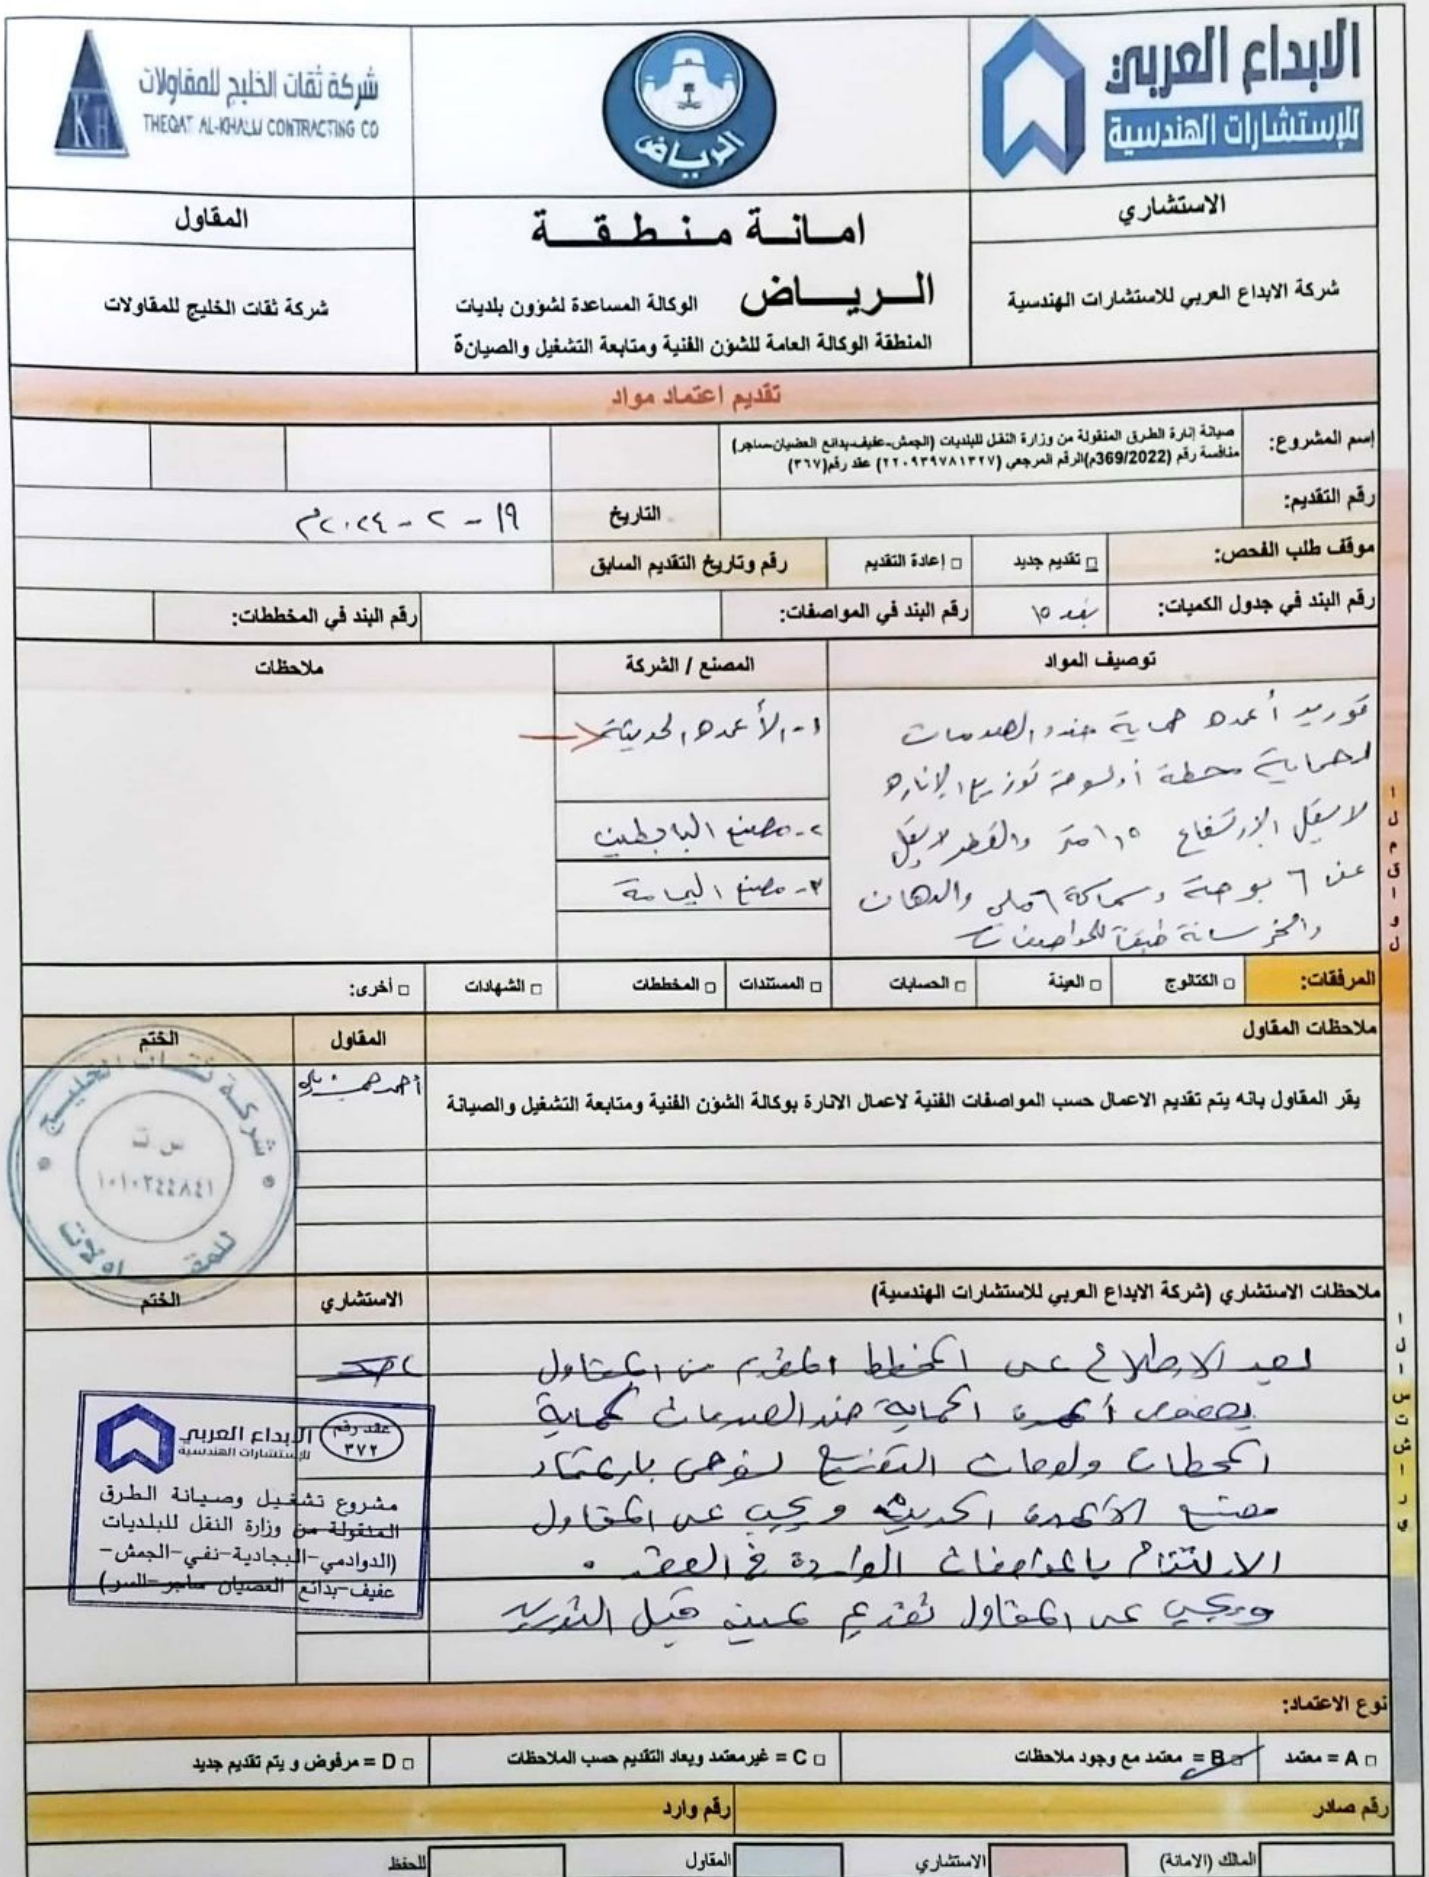 الابداع العربي
للإستشارات الهندسية
الرياض
شركة ثقات الخليج للمقاولات
THEQAT AL-KHALIJ CONTRACTING CO
KH
الاستشاري
امـــانـــة مـنـطـقـــة
الـريـــاض الوكالة المساعدة لشؤون بلديات
المنطقة الوكالة العامة للشؤن الفنية ومتابعة التشغيل والصيانة
المقاول
شركة الابداع العربي للاستشارات الهندسية
شركة ثقات الخليج للمقاولات
تقديم اعتماد مواد
إسم المشروع:
صيانة إنارة الطرق المنقولة من وزارة النقل للبلديات (الجمش-عفيف-بدائع العضيان-ساجر)
منافسة رقم (369/2022م)الرقم المرجعي (٢٢٠٩٣٩٧٨١٣٢٧) عقد رقم(٣٦٧)
رقم التقديم:
التاريخ
١٩ - ٢ - ٢٠٢٤م
موقف طلب الفحص: □ تقديم جديد □ إعادة التقديم رقم وتاريخ التقديم السابق
رقم البند في جدول الكميات: بند ١٥ رقم البند في المواصفات: رقم البند في المخططات:
توصيف المواد المصنع / الشركة ملاحظات
توريد أعمده حماية ضد الصدمات
لحماية محطة أو لوحة توزيع الإناره
لا يقل الإرتفاع ١,٥ متر والقطر لا يقل
عن ٦ بوصة وسماكة ٦ ملي والدهان
والخرسانة طبقاً للمواصفات
١- الأعمده الحديثة
٢- مصنع البابطين
٣- مصنع اليمامة
المرفقات: □ الكتالوج □ العينة □ الحسابات □ المستندات □ المخططات □ الشهادات □ أخرى:
ملاحظات المقاول المقاول الختم
يقر المقاول بانه يتم تقديم الاعمال حسب المواصفات الفنية لاعمال الانارة بوكالة الشؤن الفنية ومتابعة التشغيل والصيانة
أحمد
شركة ثقات الخليج
س ت
١٠١٠٢٤٤٨٤١
للمقاولات
ملاحظات الاستشاري (شركة الابداع العربي للاستشارات الهندسية) الاستشاري الختم
بعد الإطلاع على المخطط المقدم من المقاول
بخصوص أعمدة الحماية ضد الصدمات لحماية
المحطات ولوحات التوزيع نوصى بإعتماد
مصنع الأعمدة الحديثة ويجب على المقاول
الإلتزام بالمواصفات الواردة في العقد .
ويجب على المقاول تقديم عينه قبل التوريد
الابداع العربي
للإستشارات الهندسية
عقد رقم
٣٧٢
مشروع تشغيل وصيانة الطرق
المنقولة من وزارة النقل للبلديات
(الدوادمي-البجادية-نفي-الجمش-
عفيف-بدائع العضيان ساجر-السر)
المقاول
الاستشاري
نوع الاعتماد:
□ A = معتمد □ B = معتمد مع وجود ملاحظات □ C = غيرمعتمد ويعاد التقديم حسب الملاحظات □ D = مرفوض و يتم تقديم جديد
رقم صادر رقم وارد
المالك (الامانة) الاستشاري المقاول للحفظ